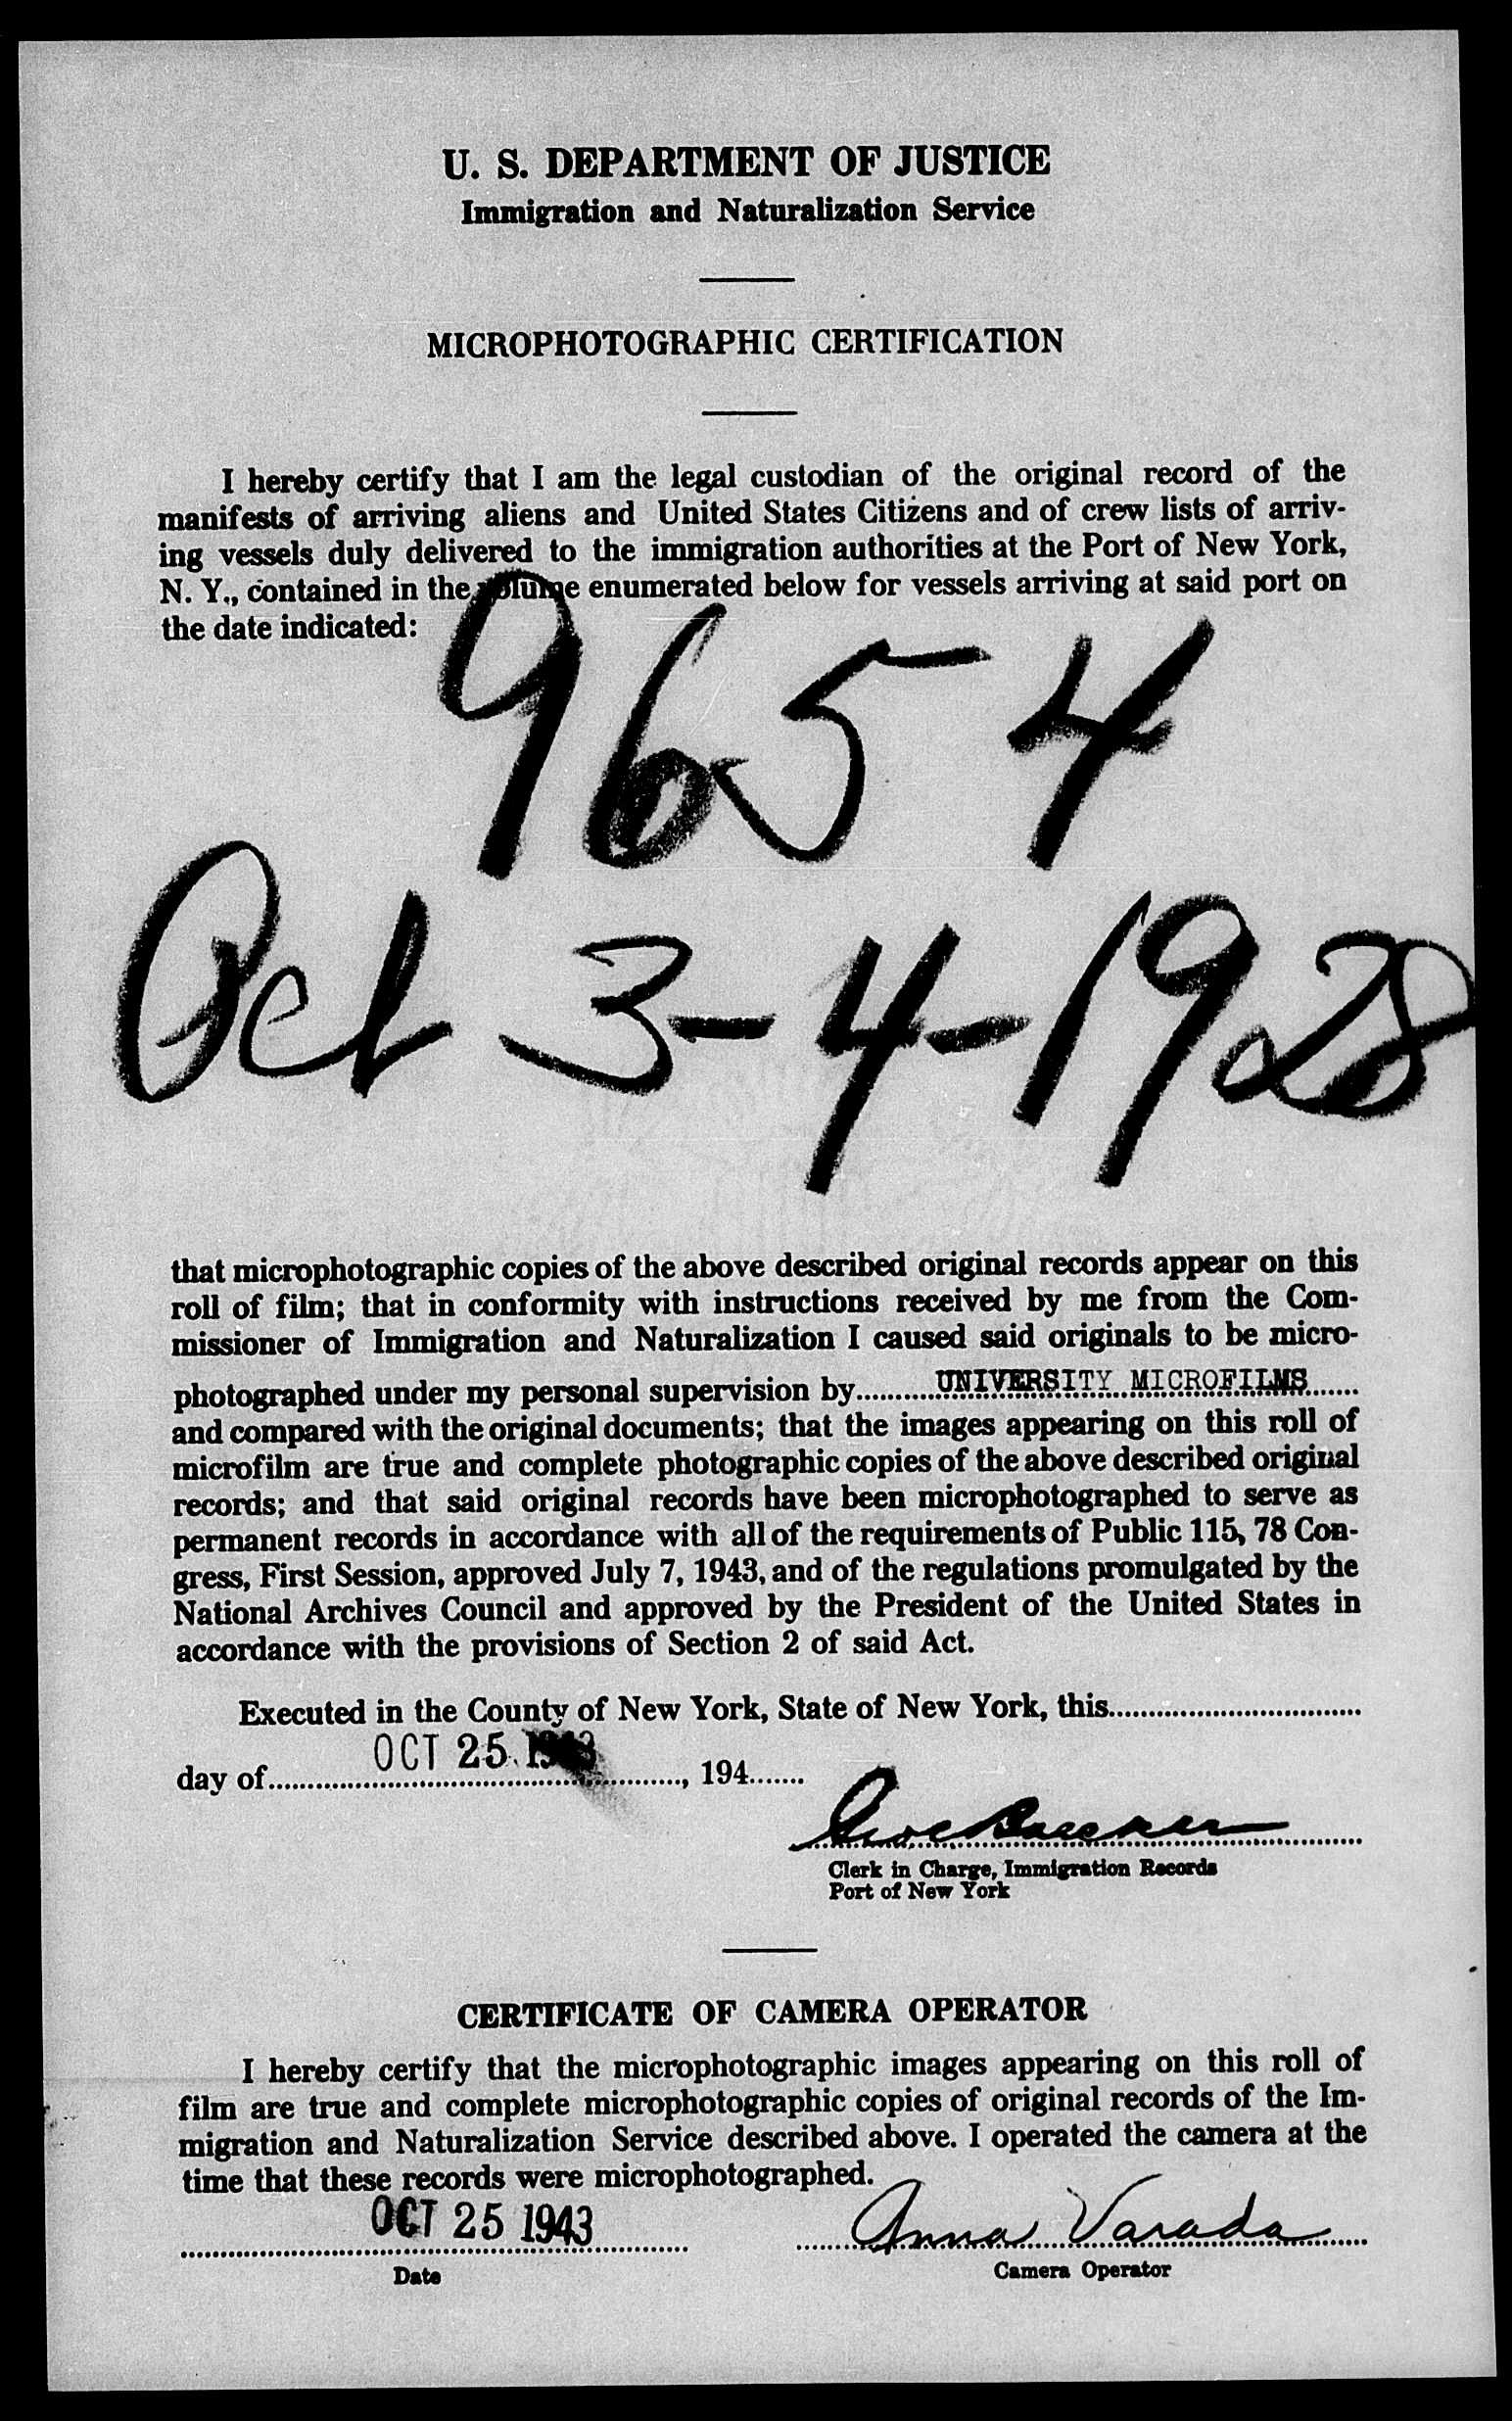 U. S. DEPARTMENT OF JUSTICE
Immigration and Naturalization Service
MICROPHOTOGRAPHIC CERTIFICATION
I hereby certify that I am the legal custodian of the original record of the
manifests of arriving aliens and United States Citizens and of crew lists of arriv-
ing vessels duly delivered to the immigration authorities at the Port of New York,
N. Y., contained in the volume enumerated below for vessels arriving at said port on
the date indicated:
9654
Oct 3-4-1928
that microphotographic copies of the above described original records appear on this
roll of film; that in conformity with instructions received by me from the Com-
missioner of Immigration and Naturalization I caused said originals to be micro-
photographed under my personal supervision by UNIVERSITY MICROFILMS
and compared with the original documents; that the images appearing on this roll of
microfilm are true and complete photographic copies of the above described original
records; and that said original records have been microphotographed to serve as
permanent records in accordance with all of the requirements of Public 115, 78 Con-
gress, First Session, approved July 7, 1943, and of the regulations promulgated by the
National Archives Council and approved by the President of the United States in
accordance with the provisions of Section 2 of said Act.
Executed in the County of New York, State of New York, this
day of OCT 25 1943, 194
Clerk in Charge, Immigration Records
Port of New York
CERTIFICATE OF CAMERA OPERATOR
I hereby certify that the microphotographic images appearing on this roll of
film are true and complete microphotographic copies of original records of the Im-
migration and Naturalization Service described above. I operated the camera at the
time that these records were microphotographed.
OCT 25 1943 Anna Varada
Date Camera Operator